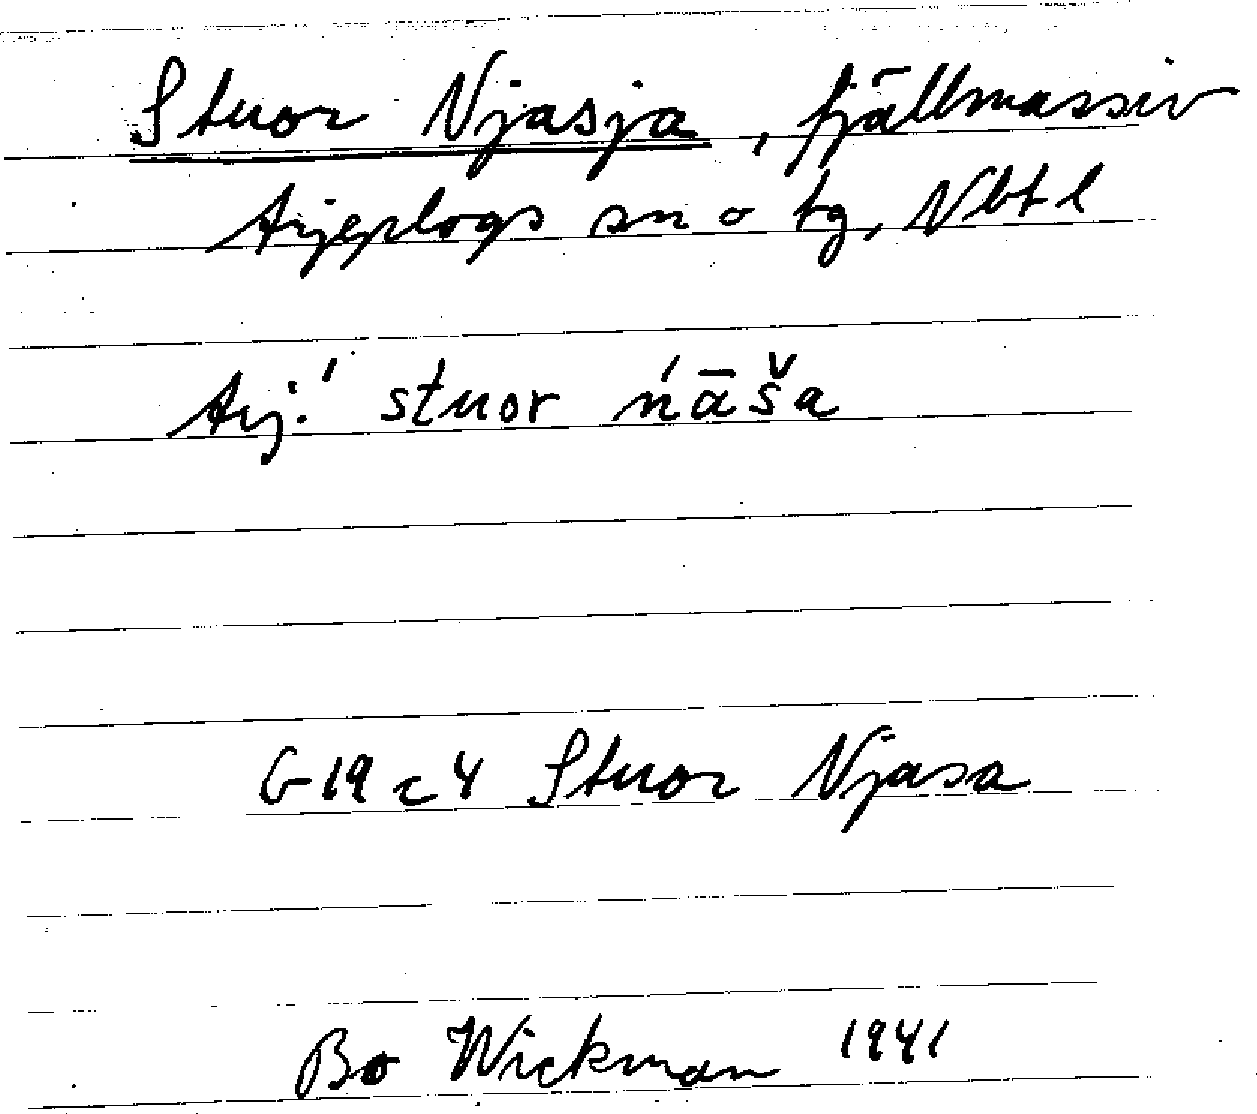 Stuor Njasja, fjällmassiv
Arjeplogs sn o tg, Nbt l
Arj.' stuor ńāša
G 19 c 4 Stuor Njasa
Bo Wickman 1941